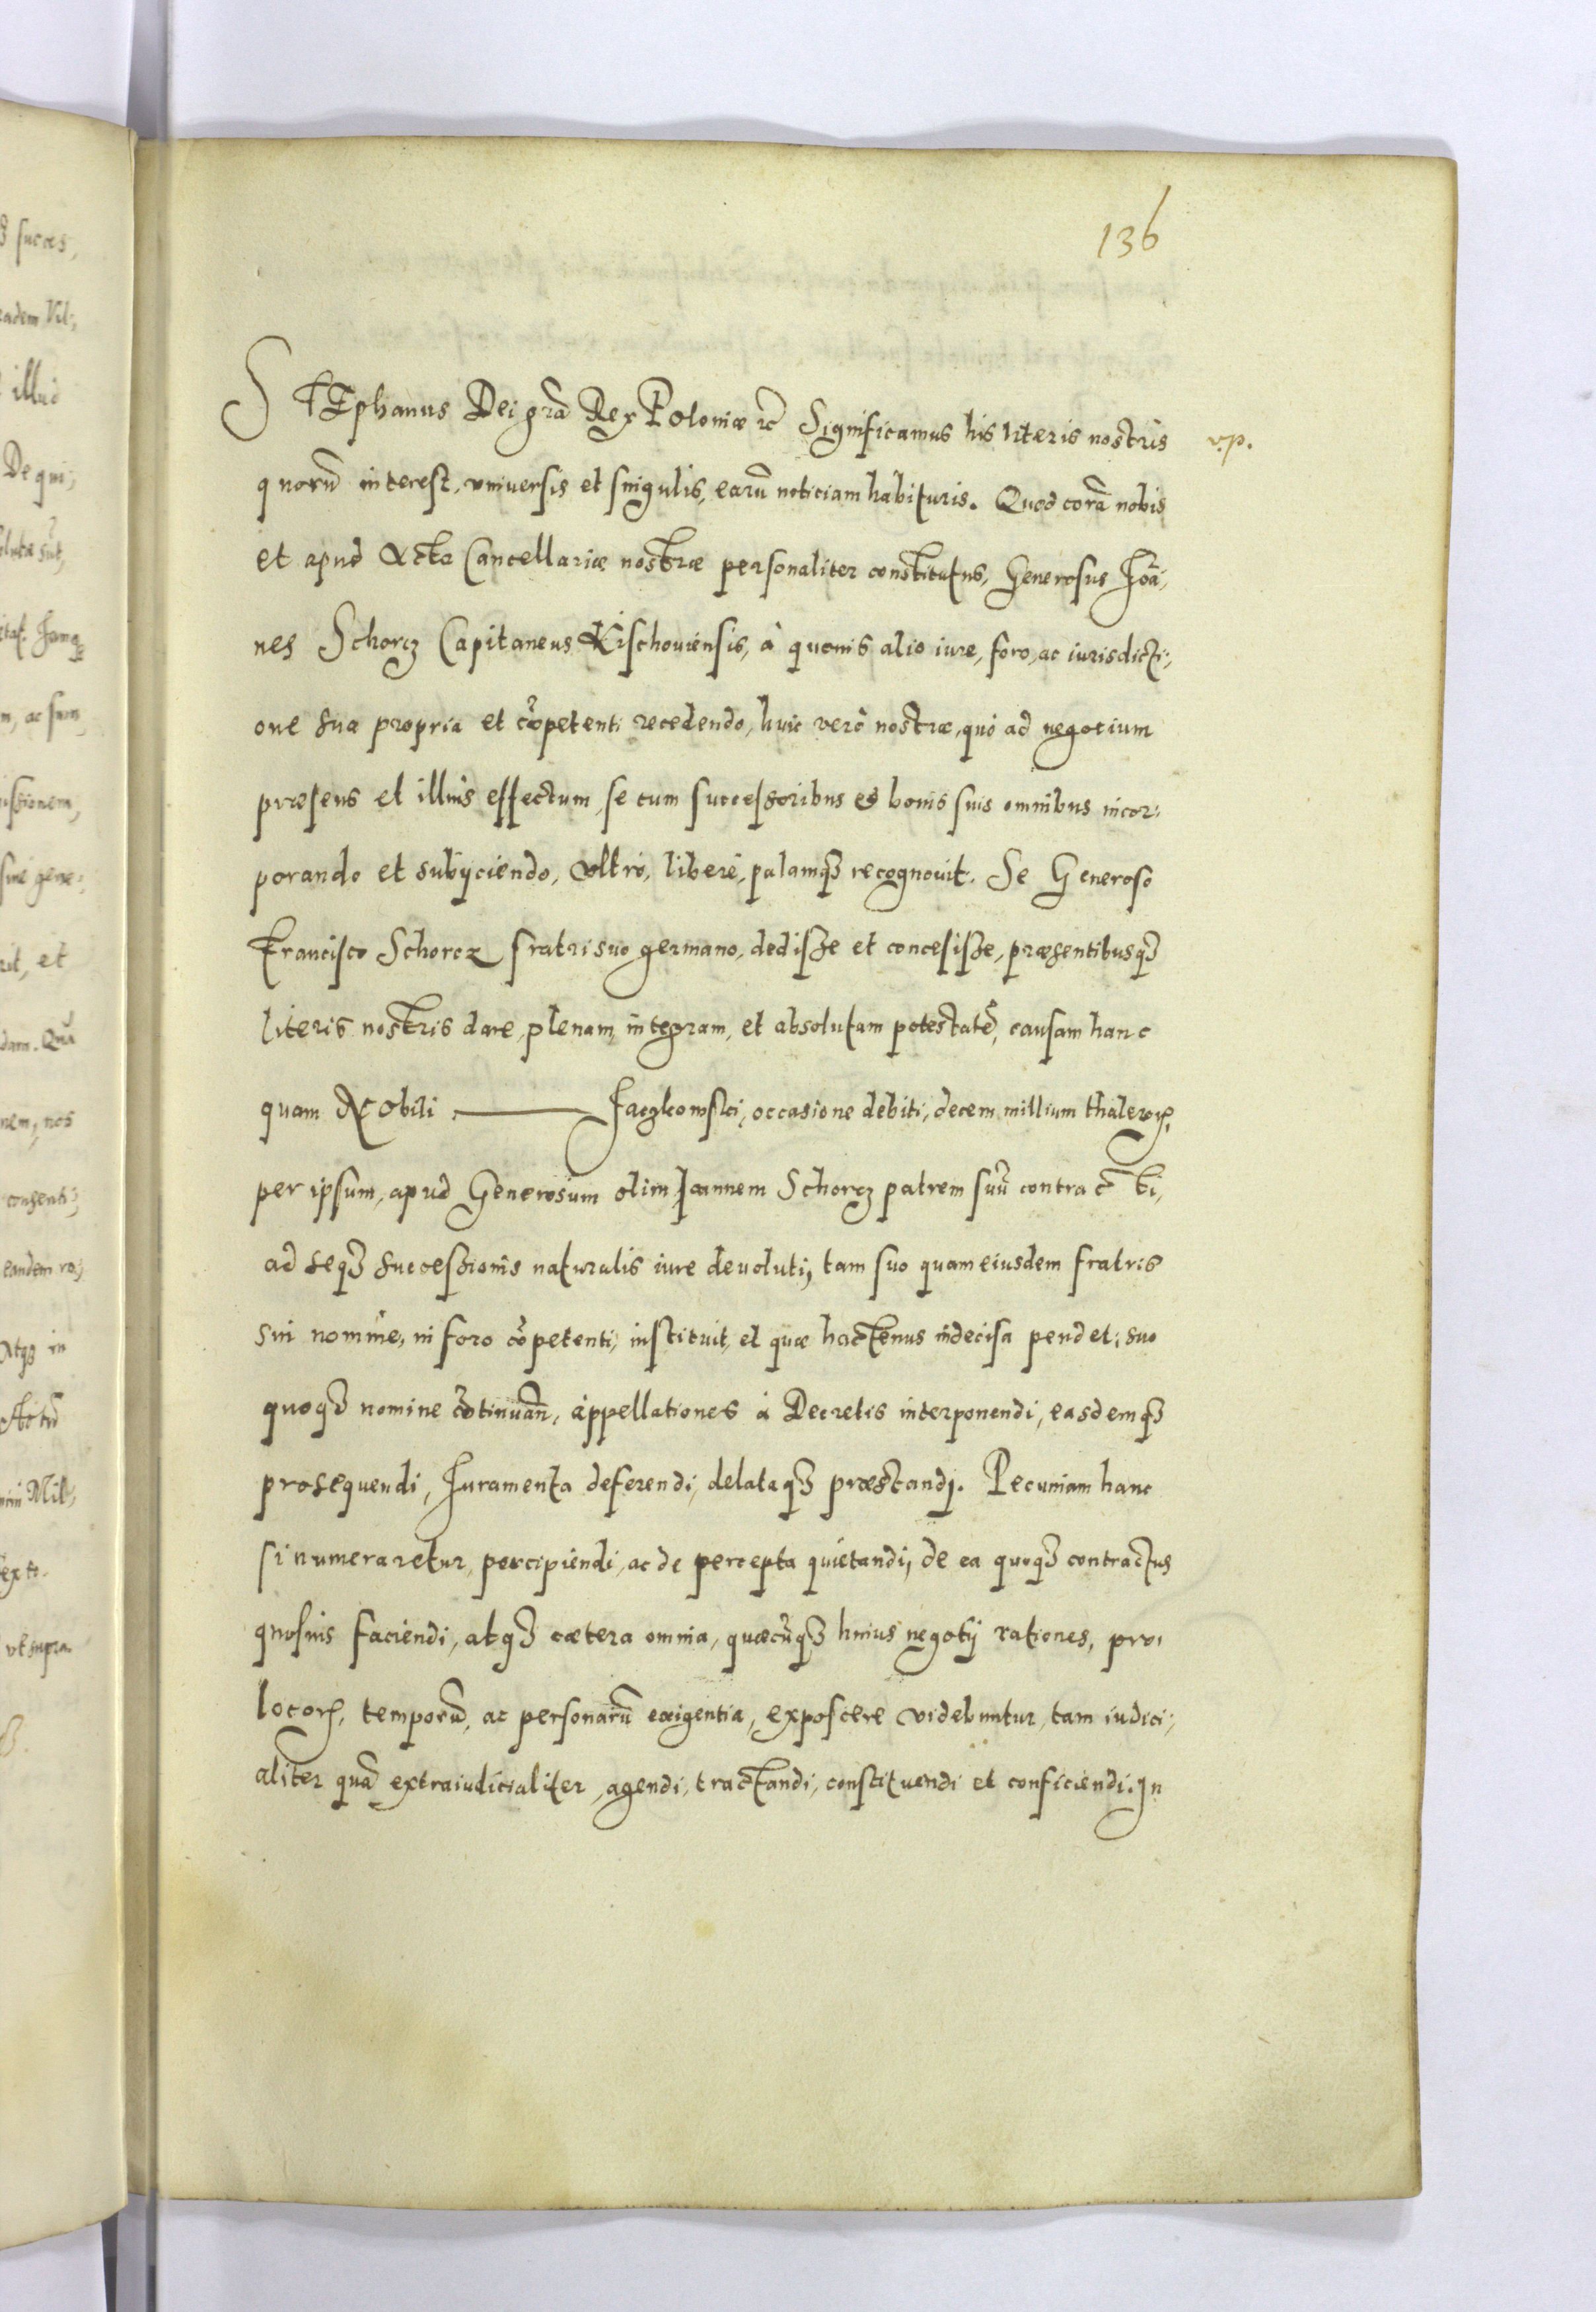 136
STEphanus Dei gra͠ Rex Poloniæ rc̃ Significamus his literis nostris v.p.
quorũ interest, vniuersis et singulis, earũ noticiam habituris. Quod corã nobis
et apud Acta Cancellariæ nostræ personaliter constitutus, Generosus Joã,
nes Schorcz Capitaneus Kischouiensis, à quouis alio iure, foro, ac iurisdicti,
one sua propria et cõpetenti recedendo, huic verò nostræ, quò ad negotium
præsens et illius effectum se cum successoribus et bonis suis omnibus incor,
porando et subijciendo, vltrò, liberè, palamqꝫ recognouit. Se Generoso
Francisco Schorcz fratri suo germano, dedisse et concessisse, præsentibusqꝫ
literis nostris dare, plenam, integram, et absolutam potestatẽ, causam hanc
quam Nobili ——— Jaczkowski, occasione debiti, decem millium thaleroꝝ,
per ipsum, apud Generosum olim Joannem Schorcz patrem suũ contracti,
ad seqꝫ successionis naturalis iure deuoluti, tam suo quam eiusdem fratris
sui nomine, in foro cõpetenti, instituit, et quæ hactenus indecisa pendet, suo
quoqꝫ nomine cõtinuãn, appellationes à Decretis interponendi, easdemqꝫ
prosequendi, Juramenta deferendi, delataqꝫ præstandi. Pecuniam hanc
si numeraretur, percipiendi, ac de percepta quietandi, de ea quoqꝫ contractus
quosuis faciendi, atqꝫ cætera omnia, quæcũqꝫ huius negotij rationes, pro,
locoꝝ, temporũ, ac personarũ exigentia, exposcere videbuntur, tam iudici,
aliter quã extraiudicialiter, agendi, tractandi, constituendi et conficiendi. Jn